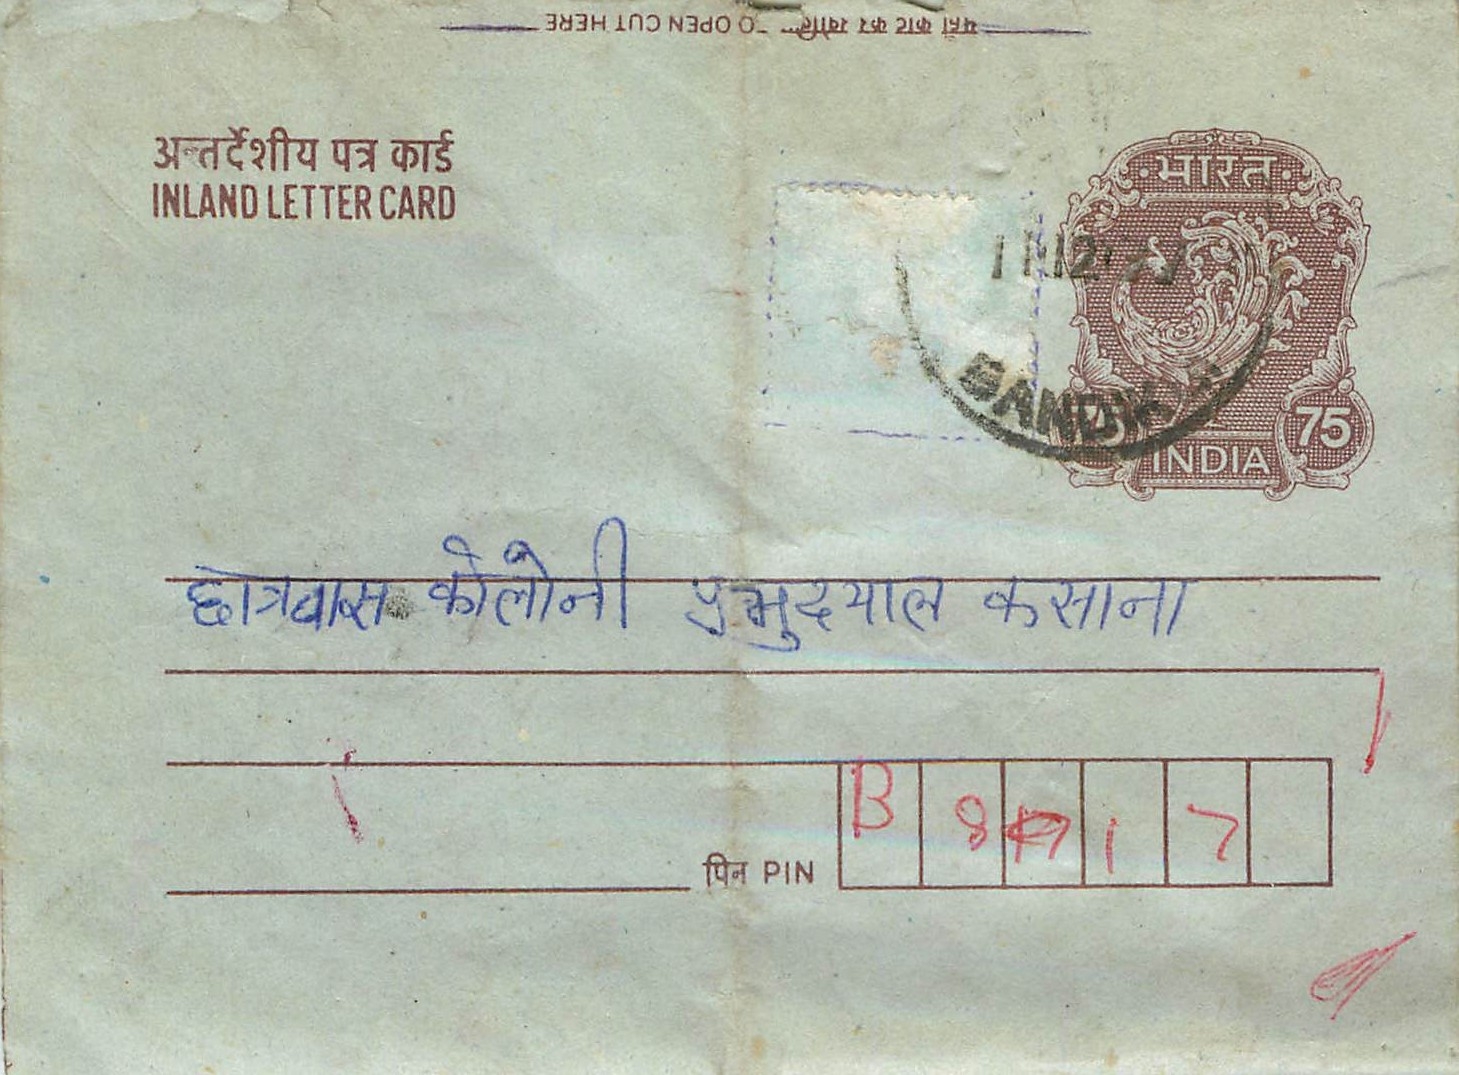 यहाँ काट कर खोलिए TO OPEN CUT HERE
अन्तर्देशीय पत्र कार्ड
INLAND LETTER CARD
भारत
75
INDIA
छात्रवास कोलोनी प्रभुदयाल कसाना
पिन PIN
B 8 1 7